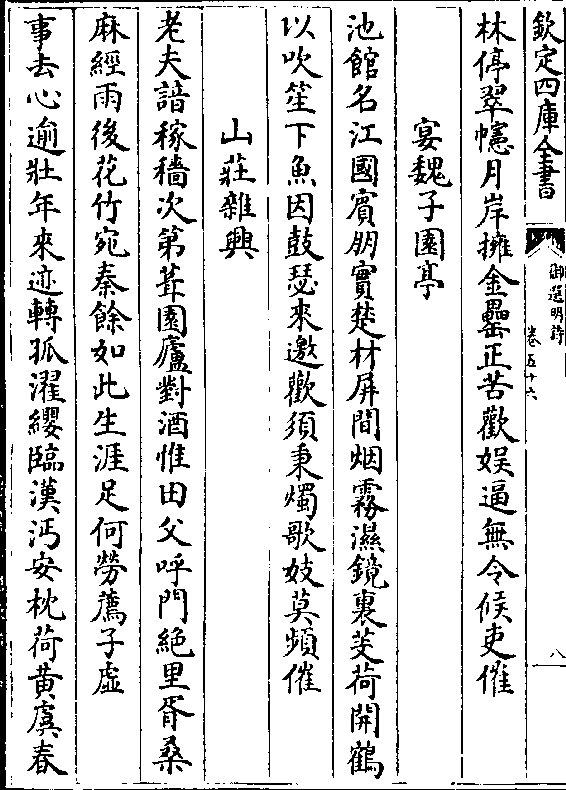 欽定四庫全書
御選明詩
卷五十六
八
林停翠幰月岸擁金罍正苦歡娱逼無令候吏催
宴魏子園亭
池館名江國賓朋實楚材屏間烟霧濕鏡裏芰荷開鶴
以吹笙下魚因鼓瑟來邀歡須秉燭歌妓莫頻催
山莊雜興
老夫諳稼穡次第葺園廬對酒惟田父呼門絶里胥桑
麻經雨後花竹宛秦餘如此生涯足何勞薦子虚
事去心逾壯年來迹轉孤濯纓臨漢沔安枕荷黄虞春